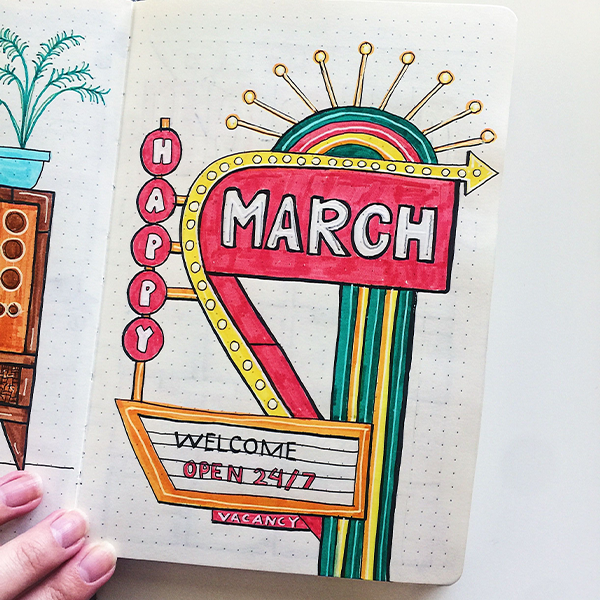 HAPPY
MARCH
WELCOME
OPEN 24/7
VACANCY